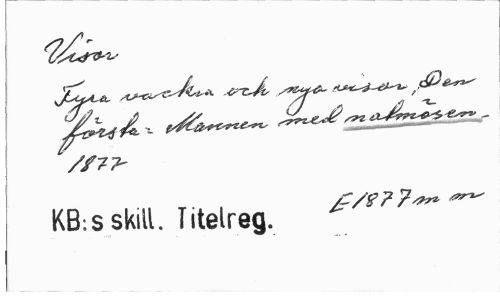 Visor
Fyra vackra och nya visor, Den
första: Mannen med natmösen.
1877
E1877 m m
KB:s skill. Titelreg.